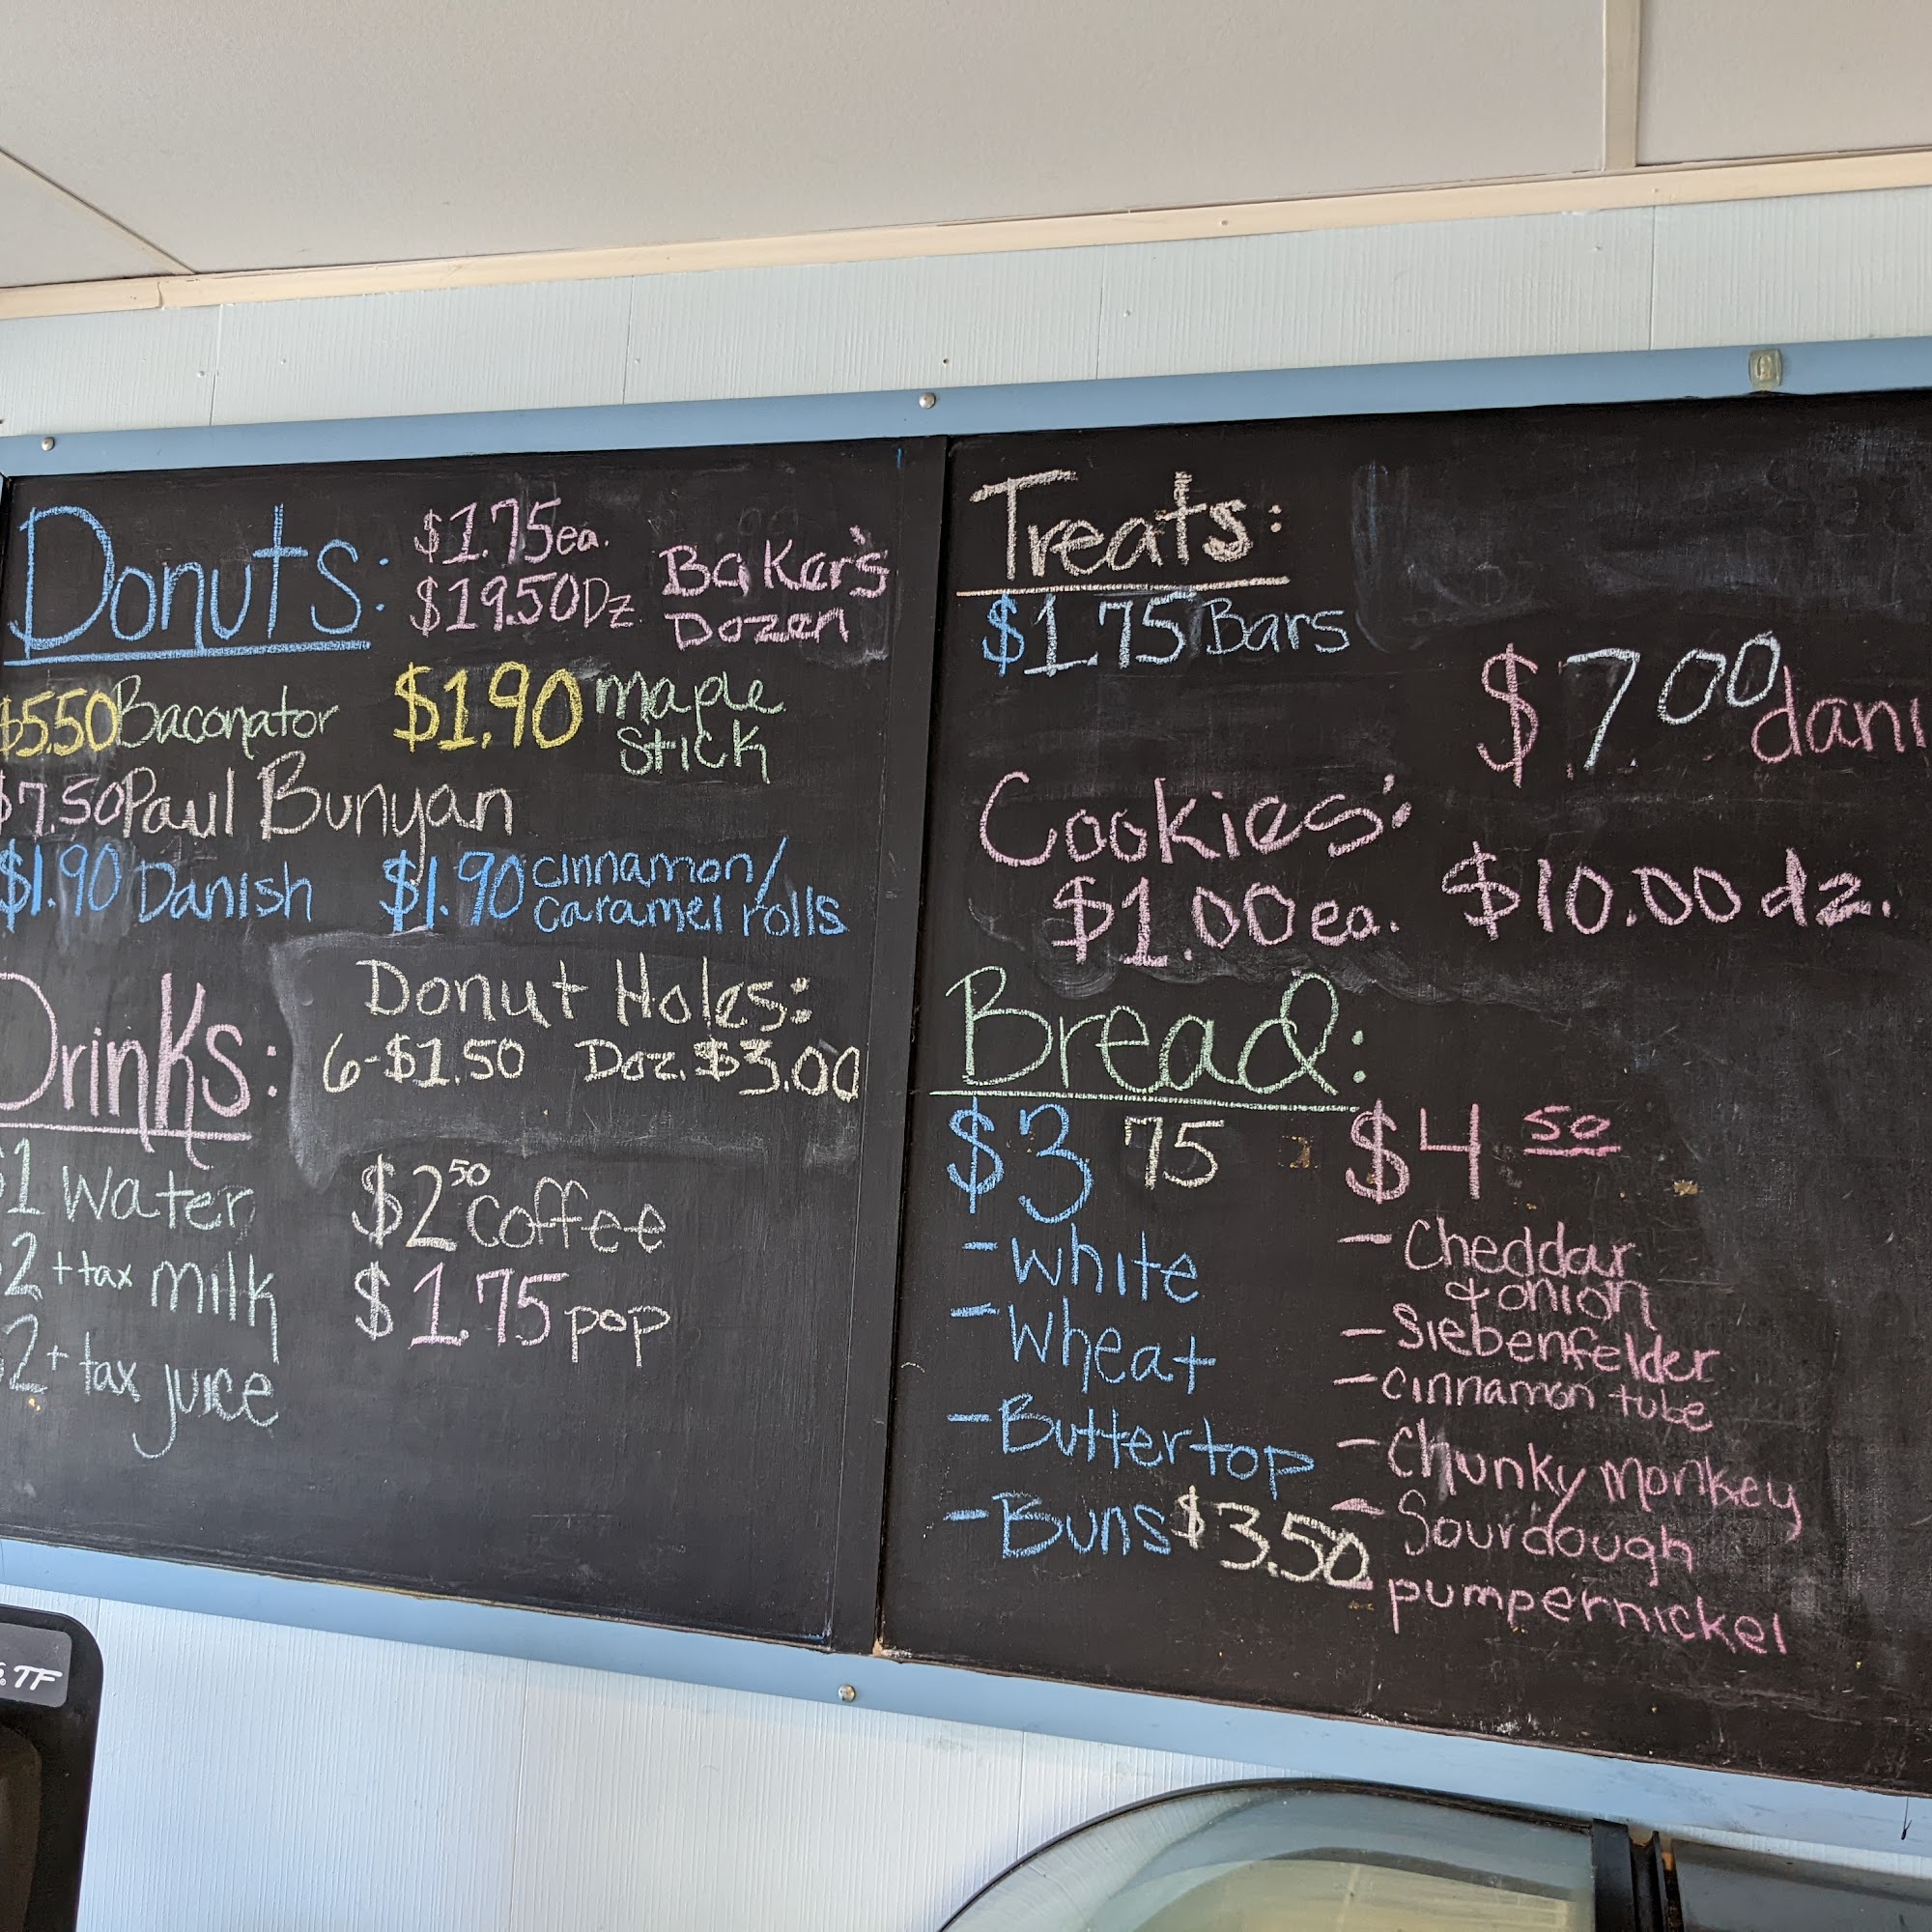 Donuts:
$1.75 ea.
$19.50 Dz
Baker's
Dozen
$5.50 Baconator
$1.90 maple
stick
$7.50 Paul Bunyan
$1.90 Danish
$1.90 cinnamon/
caramel rolls
Donut Holes:
6-$1.50 Doz. $3.00
Drinks:
$1 water
2 + tax milk
2 + tax juice
$2 50 coffee
$1.75 pop
Treats:
$1.75 Bars
$7.00 dani
Cookies:
$1.00 ea. $10.00 dz.
Bread:
$3 75
- white
- wheat
- Buttertop
- Buns $3.50
$4 50
- Cheddar
& onion
- Siebenfelder
- cinnamon tube
- Chunky monkey
- Sourdough
- pumpernickel
TF